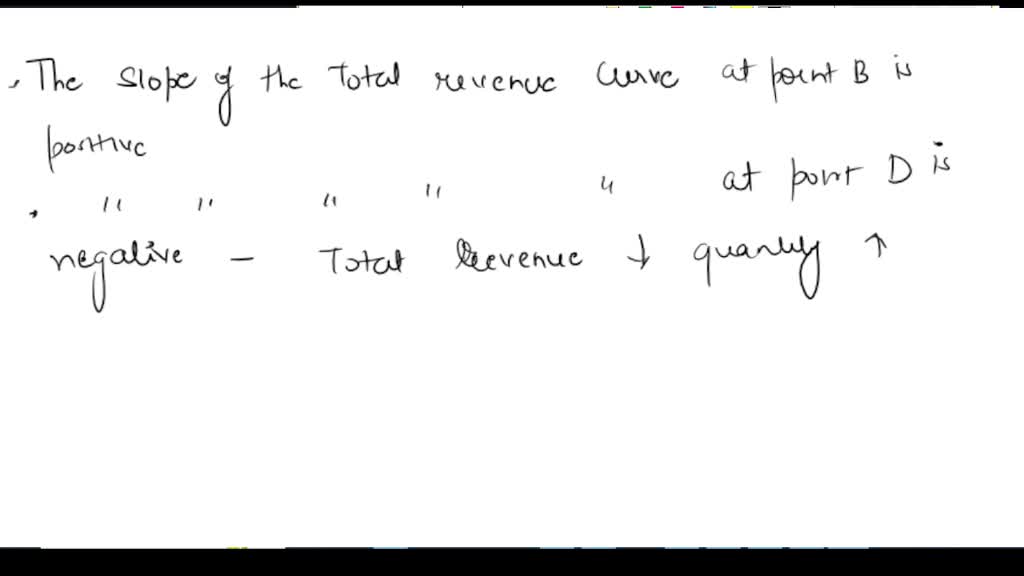 . The slope of the Total revenue curve at point B is
positive
. " " " " " at point D is
negative - Total Revenue ↓ quantity ↑